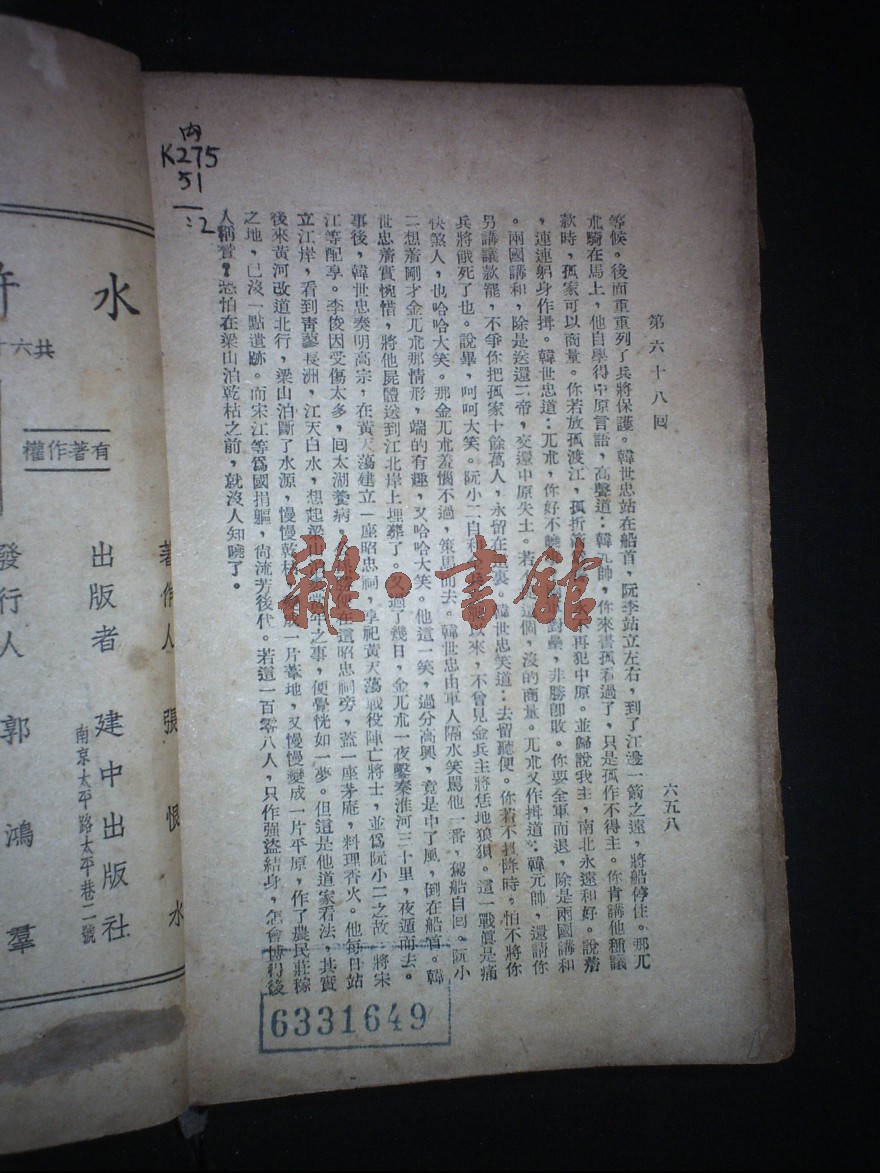 内
K275
51
:2
第六十八回
六五八
等候。後面重重列了兵將保護。韓世忠站在船首，阮李站立左右，到了江邊一箭之遠，將船停住。那兀
朮騎在馬上，他自學得中原言語，高聲道：韓元帥，你來書孤看過了，只是孤作不得主。你肯講他種議
款時，孤家可以商量。你若放孤渡江，孤折箭 再犯中原。並歸說我主，南北永遠和好。說着
，連連躬身作揖。韓世忠道：兀朮，你好不曉 對壘，非勝卽敗。你要全軍而退，除是兩國講和
。兩國講和，除是送還二帝，交還中原失土。若 這個，沒的商量。兀朮又作揖道：韓元帥，還請你
另講議款罷，不爭你把孤家十餘萬人，永留在 裏。韓世忠笑道：去留聽便。你若不投降時，怕不將你
兵將餓死了也。說畢，呵呵大笑。阮小二自 以來，不曾見金兵主將恁地狼狽。這一戰實是痛
快煞人，也哈哈大笑。那金兀朮羞惱不過，策馬而去。韓世忠由軍人隔水笑罵他一番，駕船自回。阮小
二想着剛才金兀朮那情形，端的有趣，又哈哈大笑。他這一笑，過分高興，竟是中了風，倒在船首。韓
世忠着實惋惜，將他屍體送到江北岸上埋葬了。又過了幾日，金兀朮一夜鑿秦淮河三十里，夜遁而去。
事後，韓世忠奏明高宗，在黃天蕩建立一座昭忠祠，享祀黃天蕩戰役陣亡將士，並爲阮小二之故，將宋
江等配享。李俊因受傷太多，回太湖養病， 在這昭忠祠旁，蓋一座茅庵，料理香火。他每日站
立江岸，看到靑蘆長洲，江天白水，想起梁山 當年之事，便覺恍如一夢。但這是他道家看法，其實
後來黃河改道北行，梁山泊斷了水源，慢慢乾枯 成一片葦地，又慢慢變成一片平原，作了農民莊稼
之地，已沒一點遺跡。而宋江等爲國捐軀，尙流芳後代。若這一百零八人，只作强盜結身，怎會博得後
人稱賛？恐怕在梁山泊乾枯之前，就沒人知曉了。
6331649
雜·書館
水
共六十
有著作權
著作人 張恨水
出版者 建中出版社
南京太平路太平巷二號
發行人 郭鴻羣